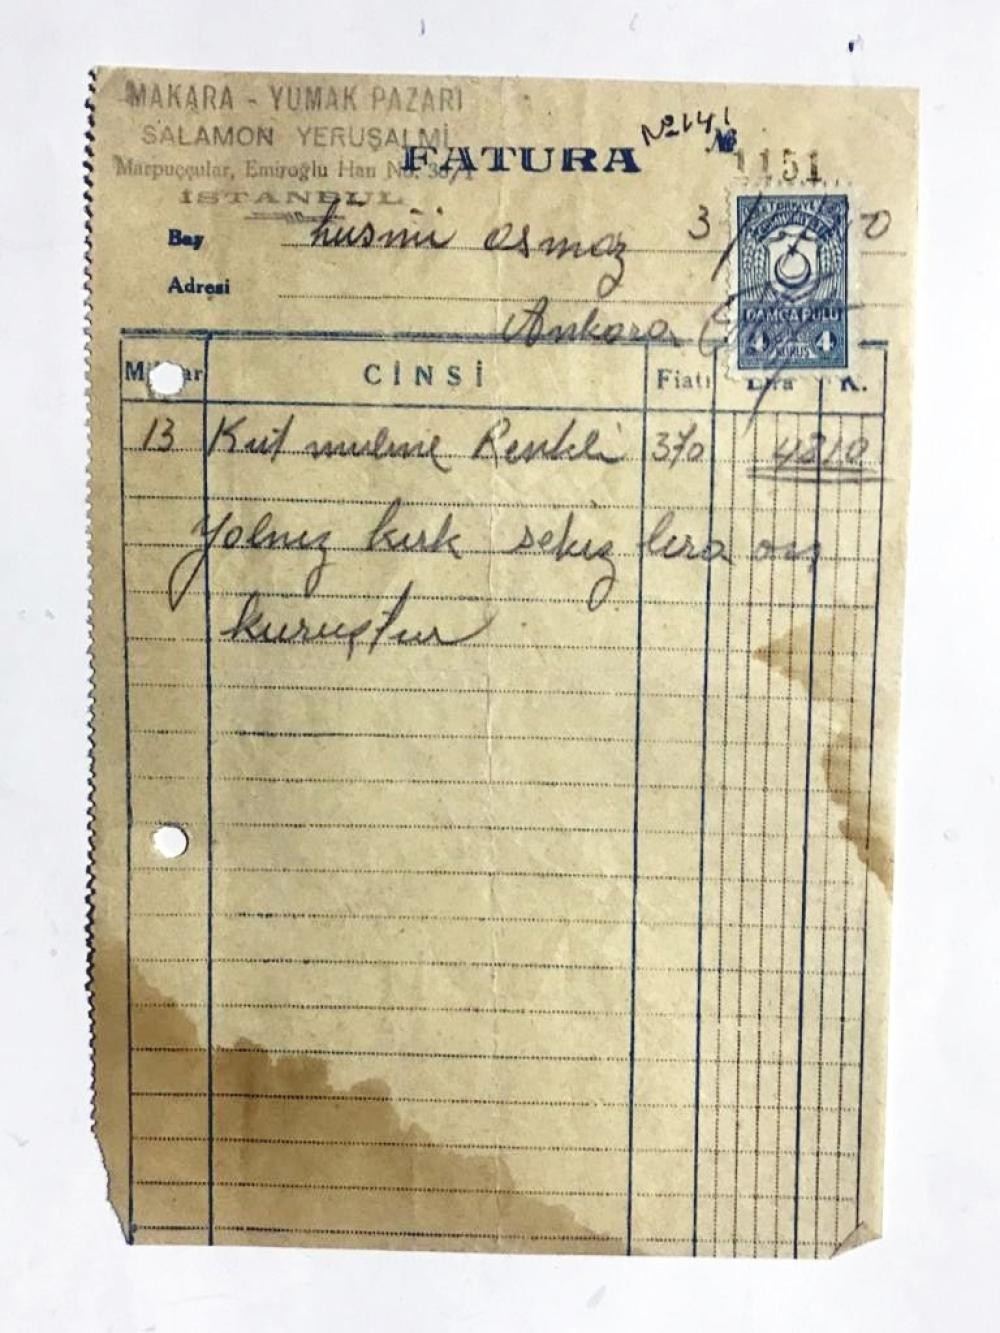 MAKARA - YUMAK PAZARI
SALAMON YERUŞALMİ
Marpuççular, Emiroğlu Han No. 36/1
İSTANBUL
FATURA
№ 141
№ 1151
Bay hüsnü osmaz 3
Adresi
Ankara
TÜRKİYE CUMHURİYETİ
DAMGA PULU
4 KURUŞ 4
Miktar CİNSİ Fiatı Lira K.
13 Kut muline Renkli 370 4810
Yalnız kırk sekiz lira on
kuruştur